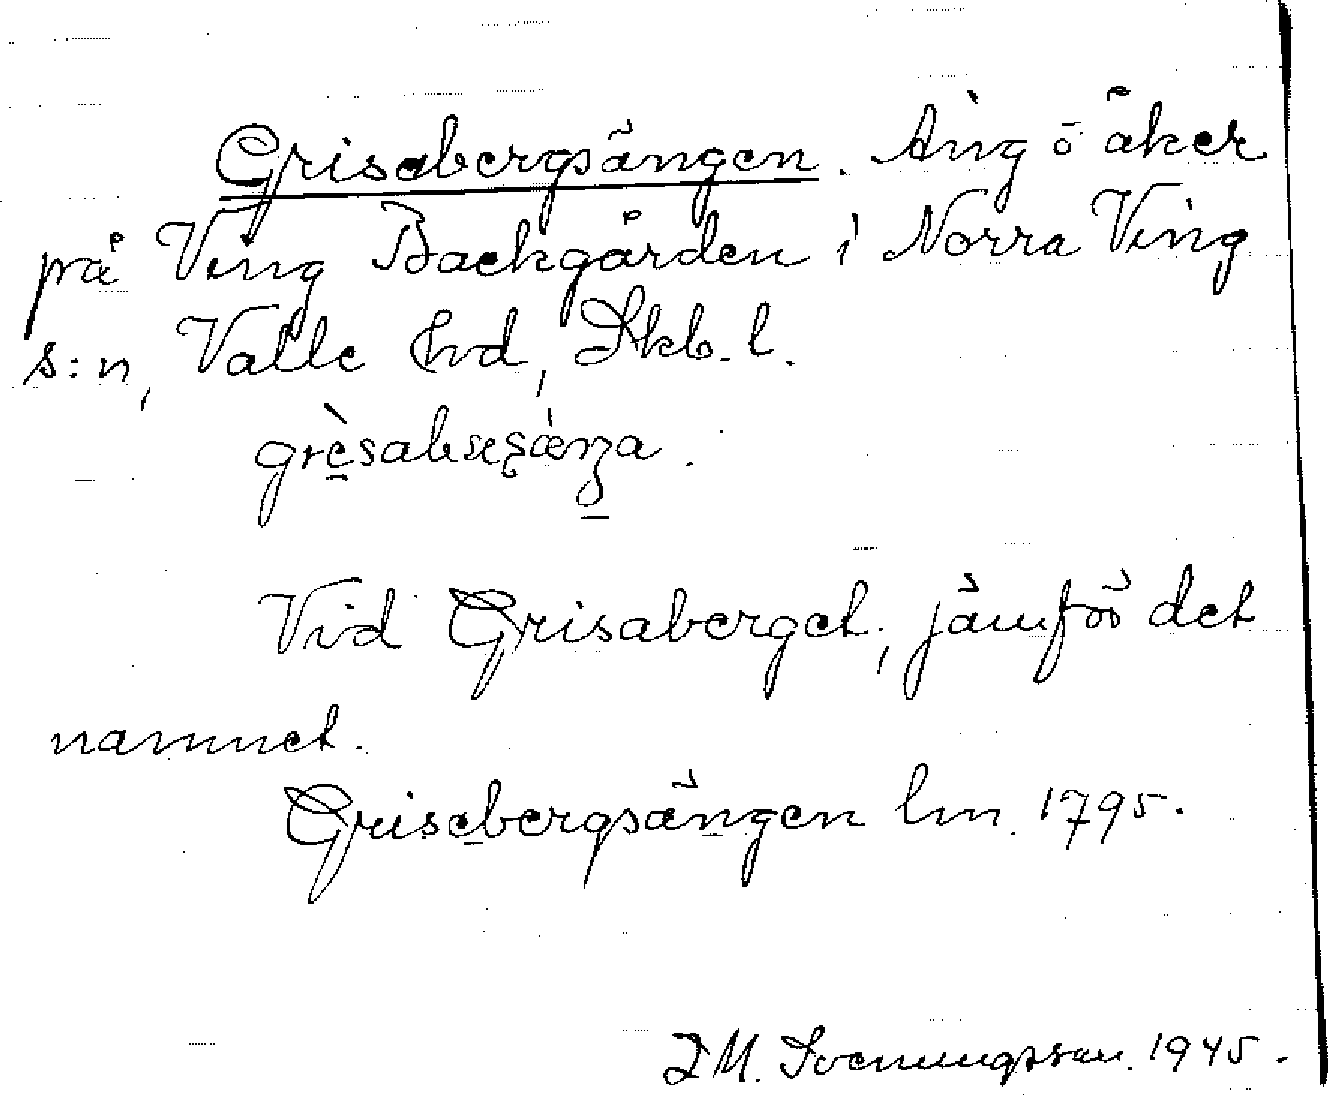 Grisebergsängen. Äng o åker
på Ving Backgården i Norra Ving
s:n, Valle hd, Skb. l.
Vid Grisaberget, jämför det
namnet.
Grisebergsängen lm. 1795.
Svenungsson. 1945.